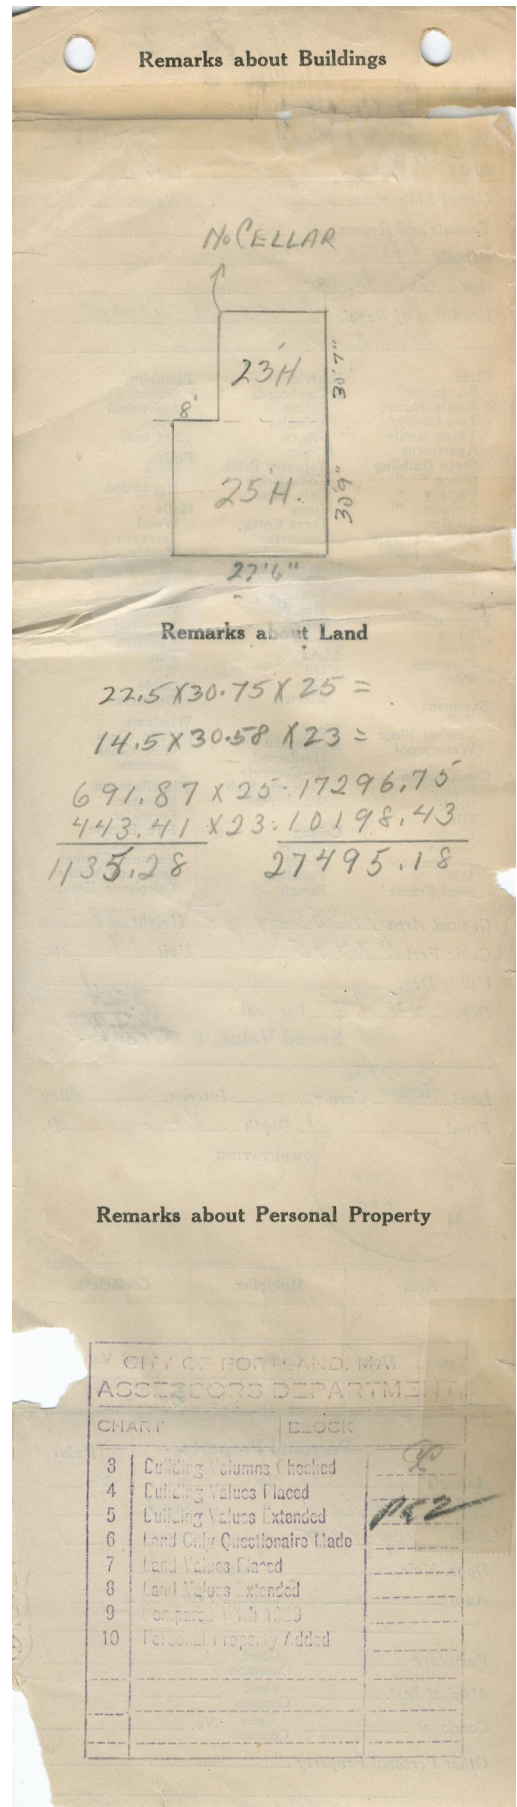 Remarks about Buildings
No CELLAR
23'H
30'7"
8'
25'H.
30'9"
22'6"
Remarks about Land
22.5 X 30.75 X 25 =
14.5 X 30.58 X 23 =
691.87 X 25 - 17296.75
443.41 X 23 - 10198.43
1135.28 27495.18
Remarks about Personal Property
CITY OF PORTLAND, MAI
ASSESSORS DEPARTMENT
CHART BLOCK
3 Building Volumns Checked
4 Building Values Placed
5 Building Values Extended
6 Land Only Questionaire Made
7 Land Values Placed
8 Land Values Extended
9 Compared With
10 Personal Property Added